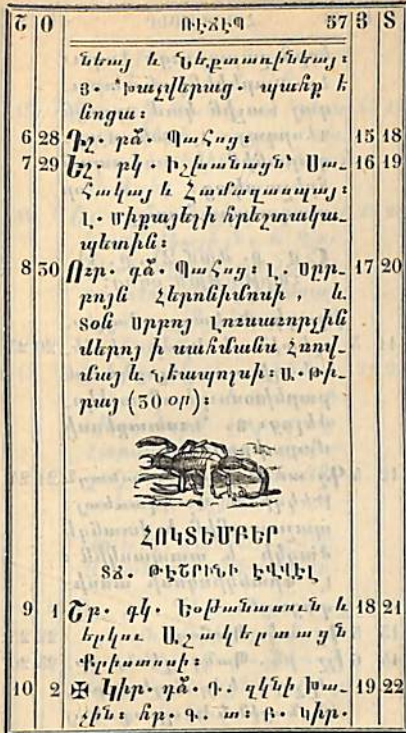 Շ Օ ՌԻՃԷՊ 57 Յ Տ
նեայ և Նեքտառինեայ։
Յ. Խաչվերաց. պահք է
նոցա։
6 28 Դշ. րձ. Պահոց։ 15 18
7 29 Եշ. րկ. Իշխանացն՝ Սա- 16 19
հակայ և Համազասպայ։
Լ. Միքայէլի հրեշտակա-
պետին։
8 30 Ուր. գձ. Պահոց։ Լ. Սըր- 17 20
բոյն Հերոնիմոսի, և
Տօն Սրբոյ Լուսաւորչին
մերոյ ի սահմանս Հռով-
մայ և Նէապոլսի։ Ա. Թի-
րայ (30 օր)։
ՀՈԿՏԵՄԲԵՐ
ՏՃ. ԹԷՇՐԻՆԻ ԷՎՎԷԼ
9 1 Շր. գկ. Եօթանասուն և 18 21
երկու Աշակերտացն
Քրիստոսի։
10 2 ✠ Կիր. դձ. Գ. զկնի խա- 19 22
չին։ հր. գ. տ։ Բ. Կիր.